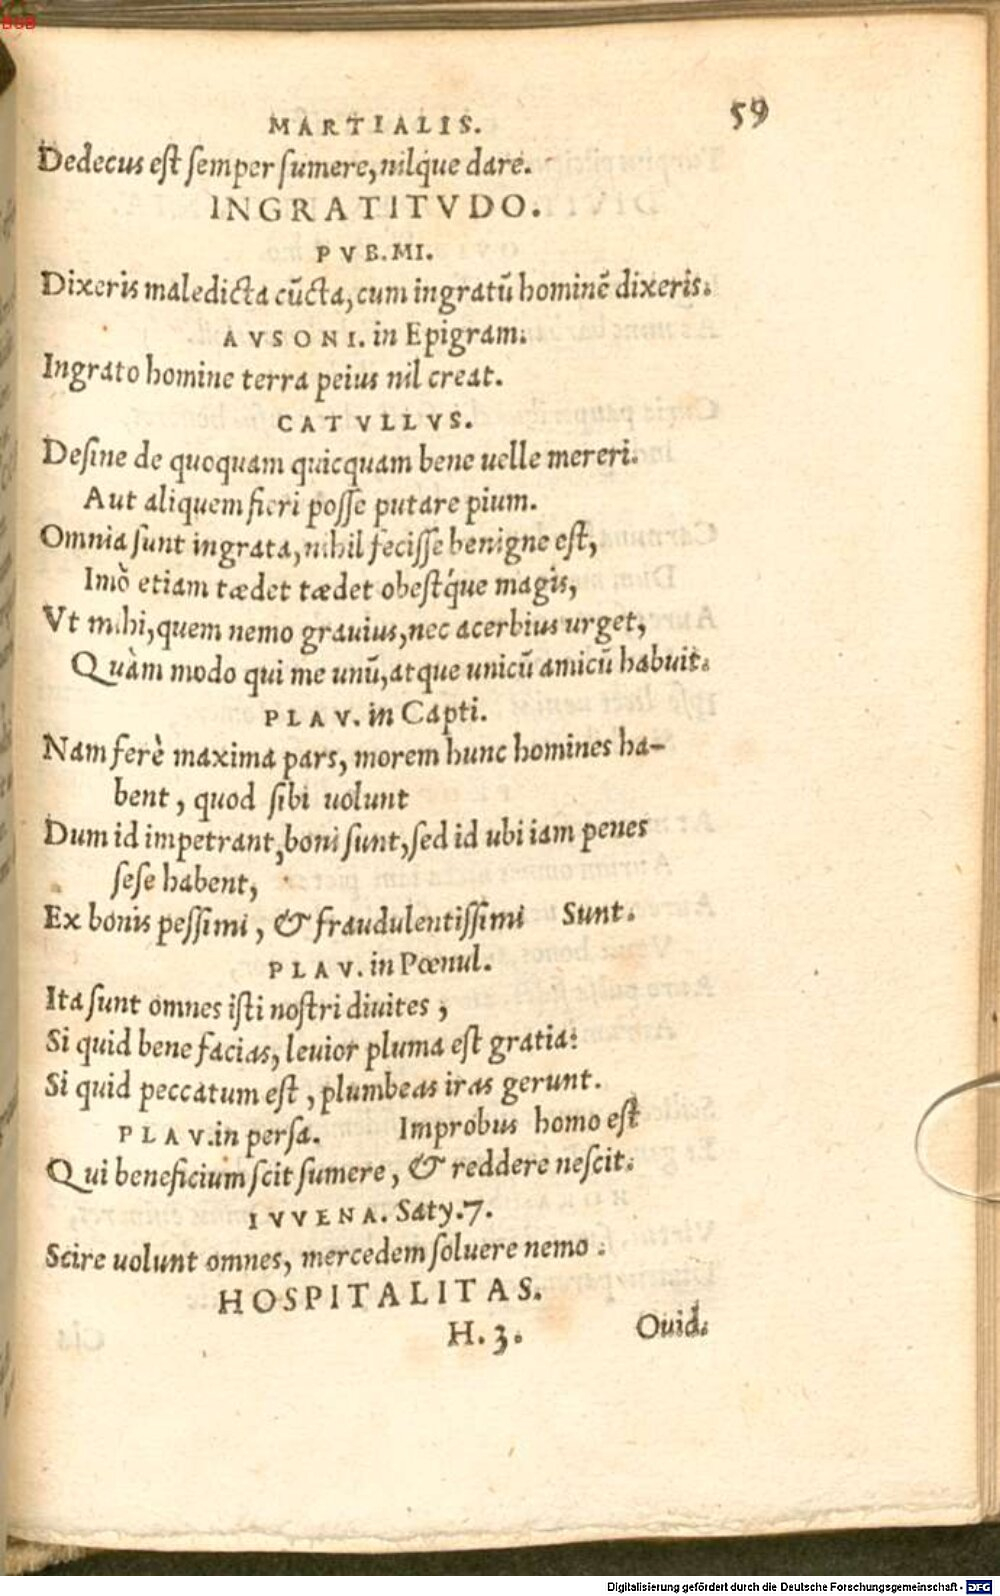 BSB
59
MARTIALIS.
Dedecus est semper sumere, nilq́ue dare.
INGRATITVDO.
PVB.MI.
Dixeris maledicta cūcta, cum ingratū hominē dixeris.
AVSONI. in Epigram.
Ingrato homine terra peius nil creat.
CATVLLVS.
Desine de quoquam quicquam bene uelle mereri.
Aut aliquem fieri posse putare pium.
Omnia sunt ingrata, nihil fecisse benigne est,
Imò etiam tædet tædet obestq́ue magis,
Vt mihi, quem nemo grauius, nec acerbius urget,
Quàm modo qui me unū, atque unicū amicū habuit.
PLAV. in Capti.
Nam ferè maxima pars, morem hunc homines ha-
bent, quod sibi uolunt
Dum id impetrant, boni sunt, sed id ubi iam penes
sese habent,
Ex bonis pessimi, & fraudulentissimi Sunt.
PLAV. in Pœnul.
Ita sunt omnes isti nostri diuites,
Si quid bene facias, leuior pluma est gratia:
Si quid peccatum est, plumbeas iras gerunt.
PLAV. in persa. Improbus homo est
Qui beneficium scit sumere, & reddere nescit.
IVVENA. Saty.7.
Scire uolunt omnes, mercedem soluere nemo.
HOSPITALITAS.
H.3. Ouid.
Digitalisierung gefördert durch die Deutsche Forschungsgemeinschaft - DFG